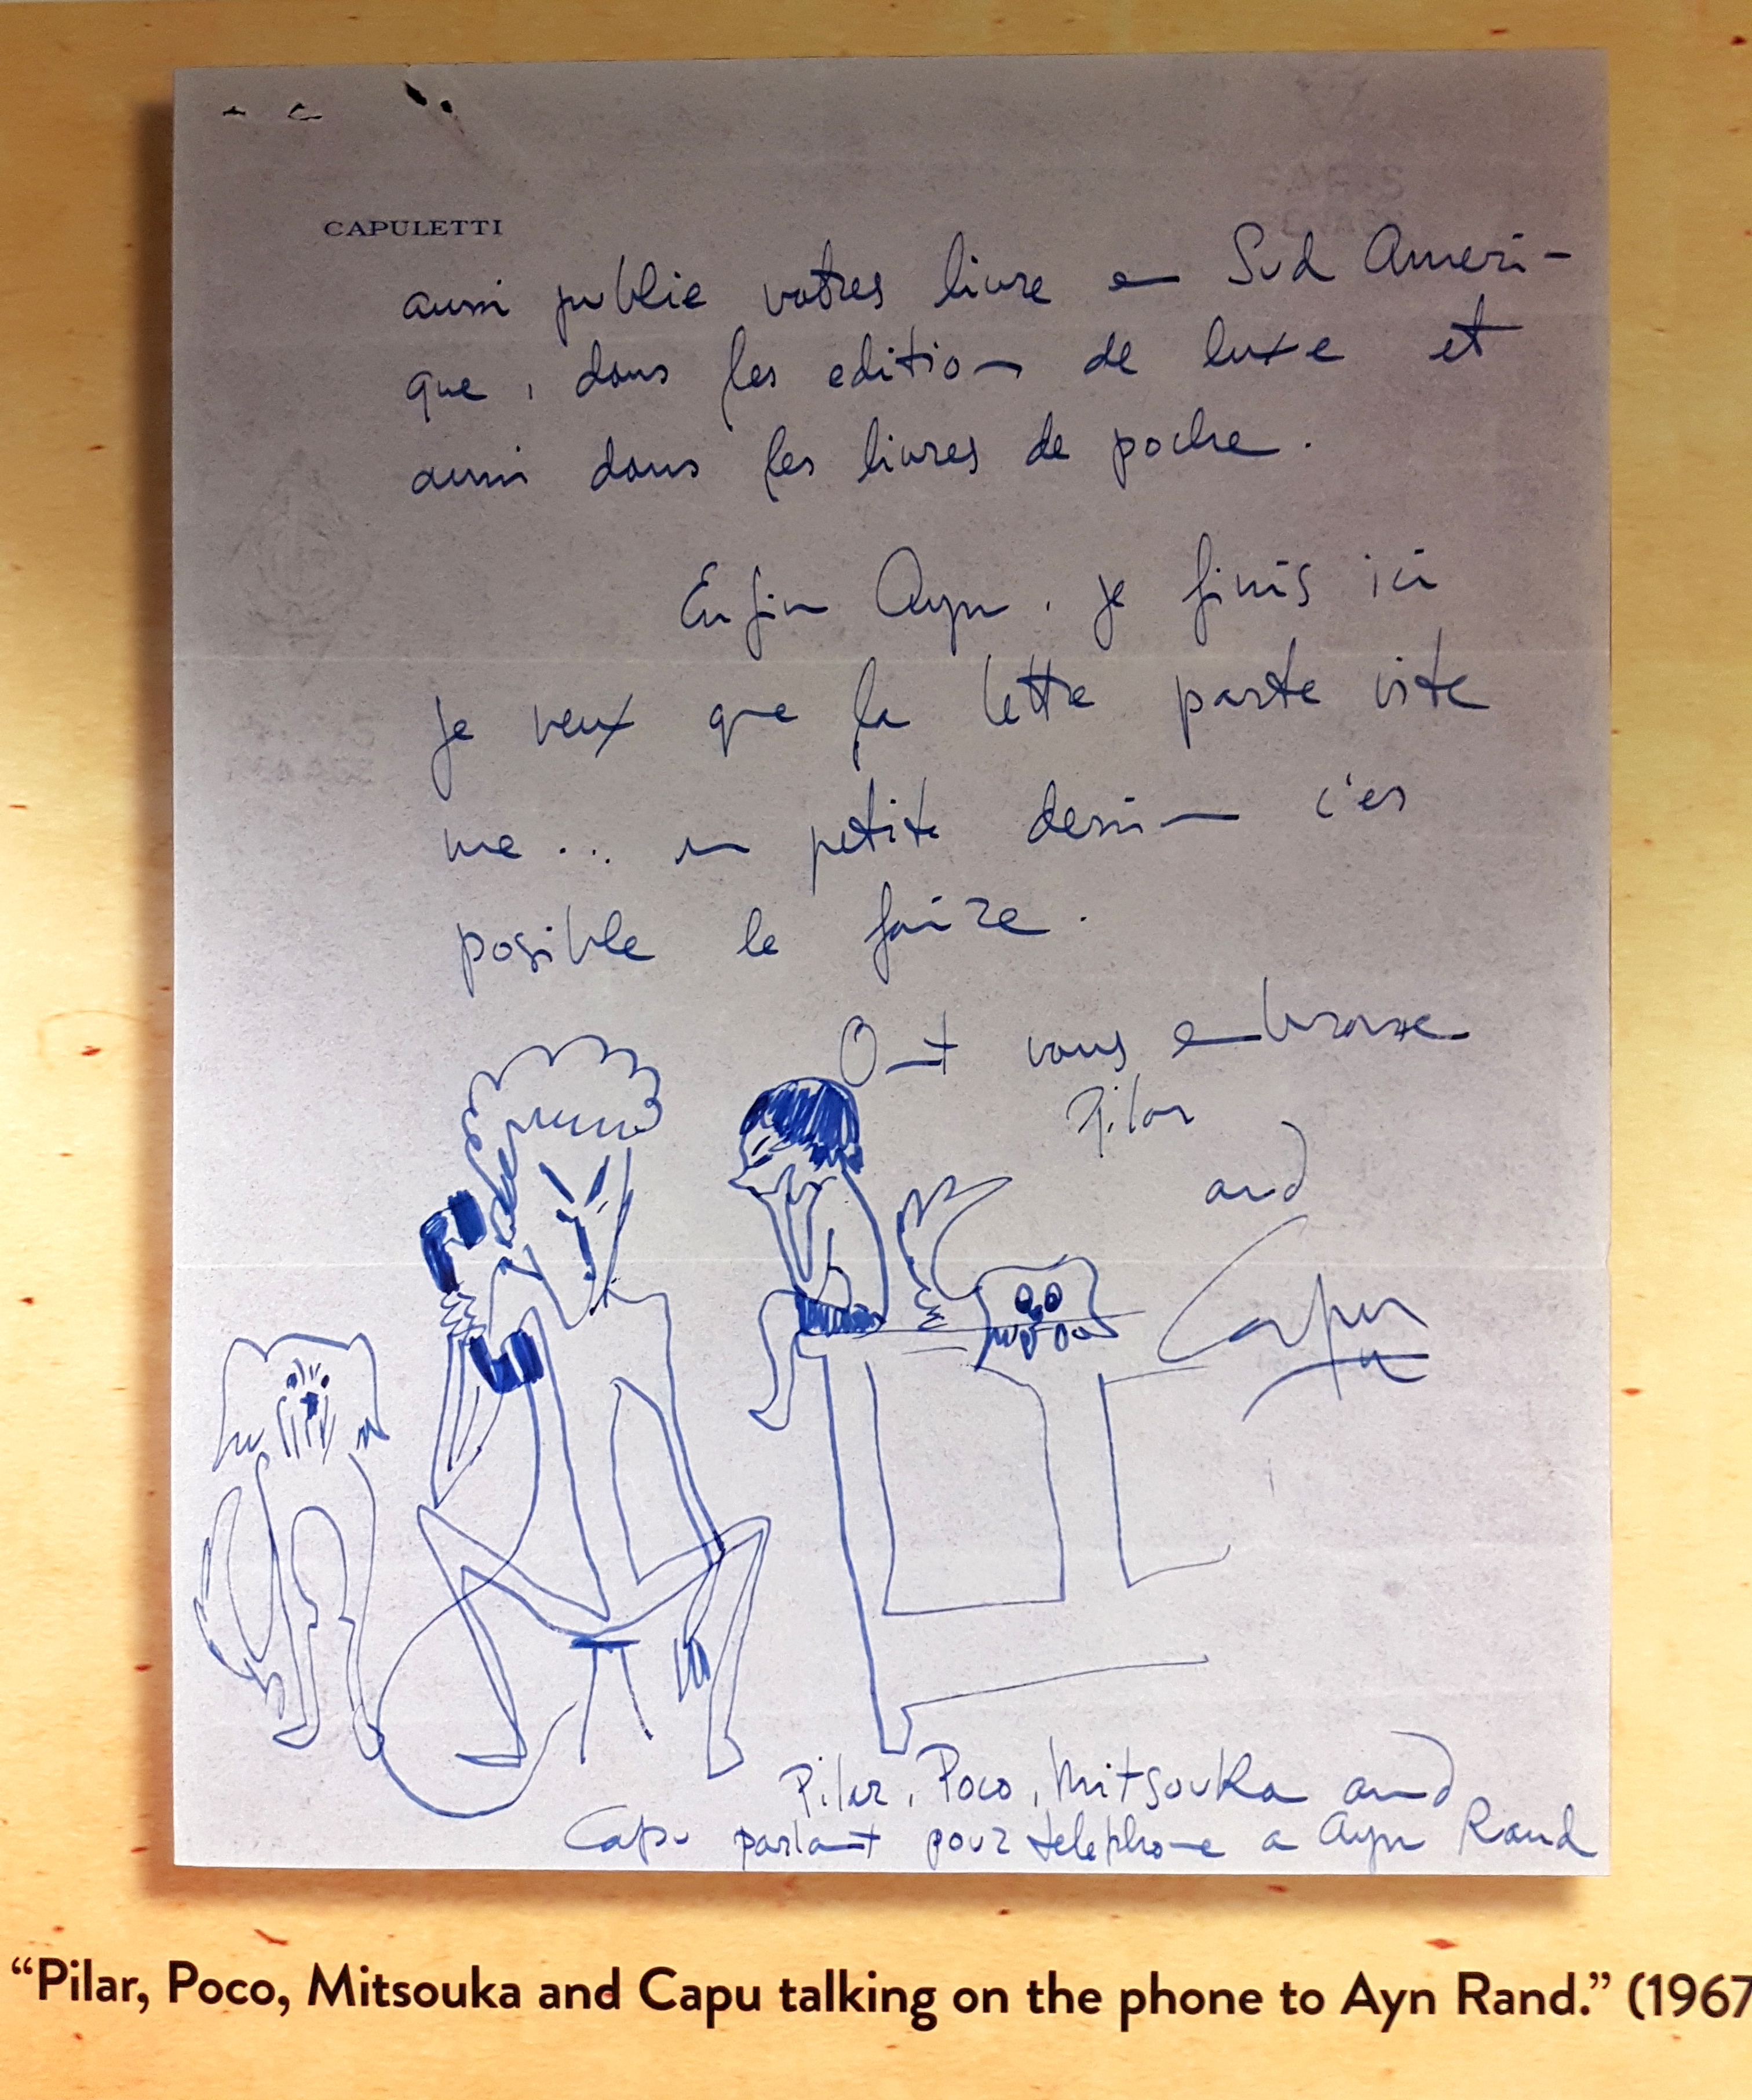 CAPULETTI
aussi publie votres livre en Sud Ameri-
que, dans les edition de luxe et
aussi dans les livres de poche.
Enfin Ayn. je finis ici
je veux que la lettre parte vite
me... un petite dessin c'es
posible le faire.
Ont vous embrasse
Pilar
and
Capu
Pilar, Poco, Mitsouka and
Capu parlant pour telephone a Ayn Rand
“Pilar, Poco, Mitsouka and Capu talking on the phone to Ayn Rand.” (1967